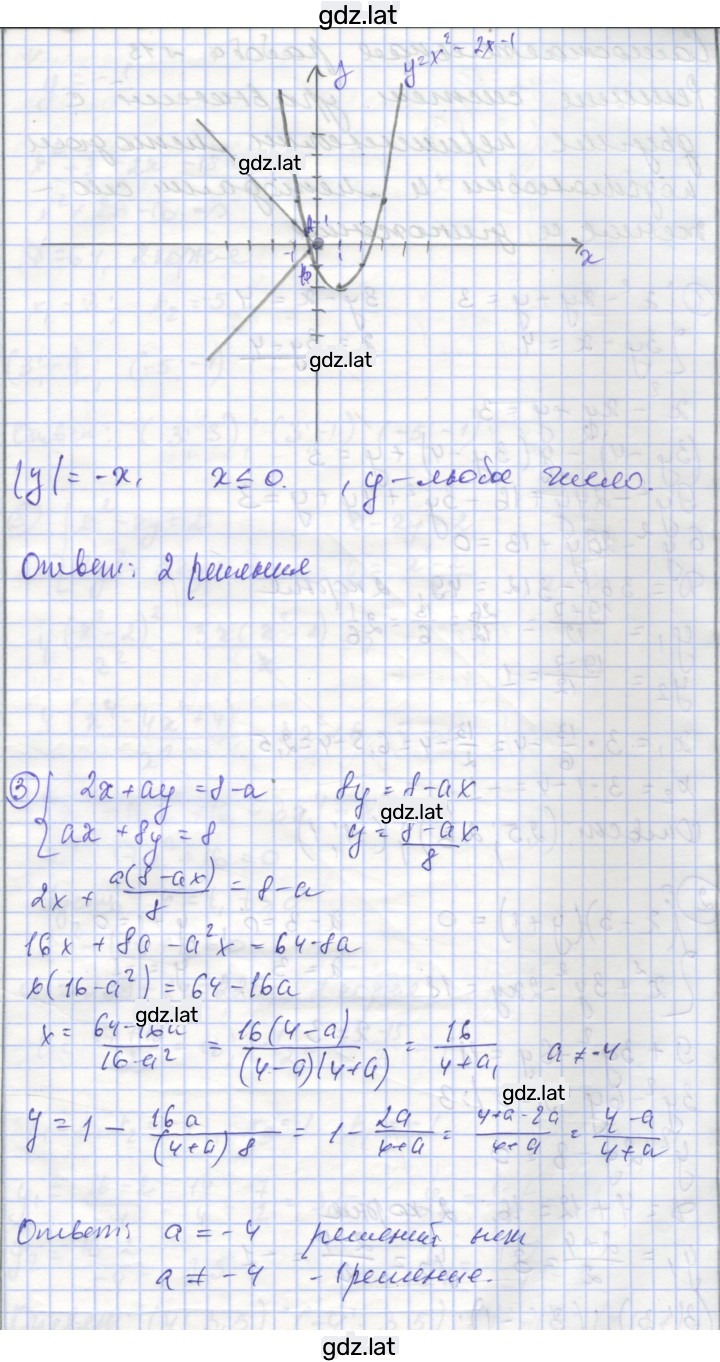 gdz.lat
y=x²-2x-1
y
gdz.lat
A
1
-1
1
x
B
gdz.lat
|y|=-x, x≤0. , y-любое число.
Ответ: 2 решения
③ { 2x+ay=8-a 8y=8-ax
gdz.lat
ax+8y=8 y=(8-ax)/8
2x+a(8-ax)/8=8-a
16x+8a-a²x=64-8a
x(16-a²)=64-16a
gdz.lat
x=(64-16a)/(16-a²)=16(4-a)/((4-a)(4+a))=16/(4+a), a≠-4
gdz.lat
y=1-16a/((4+a)8)=1-2a/(4+a)=(4+a-2a)/(4+a)=(4-a)/(4+a)
Ответ: a=-4 решений нет
a≠-4 -1 решение.
gdz.lat